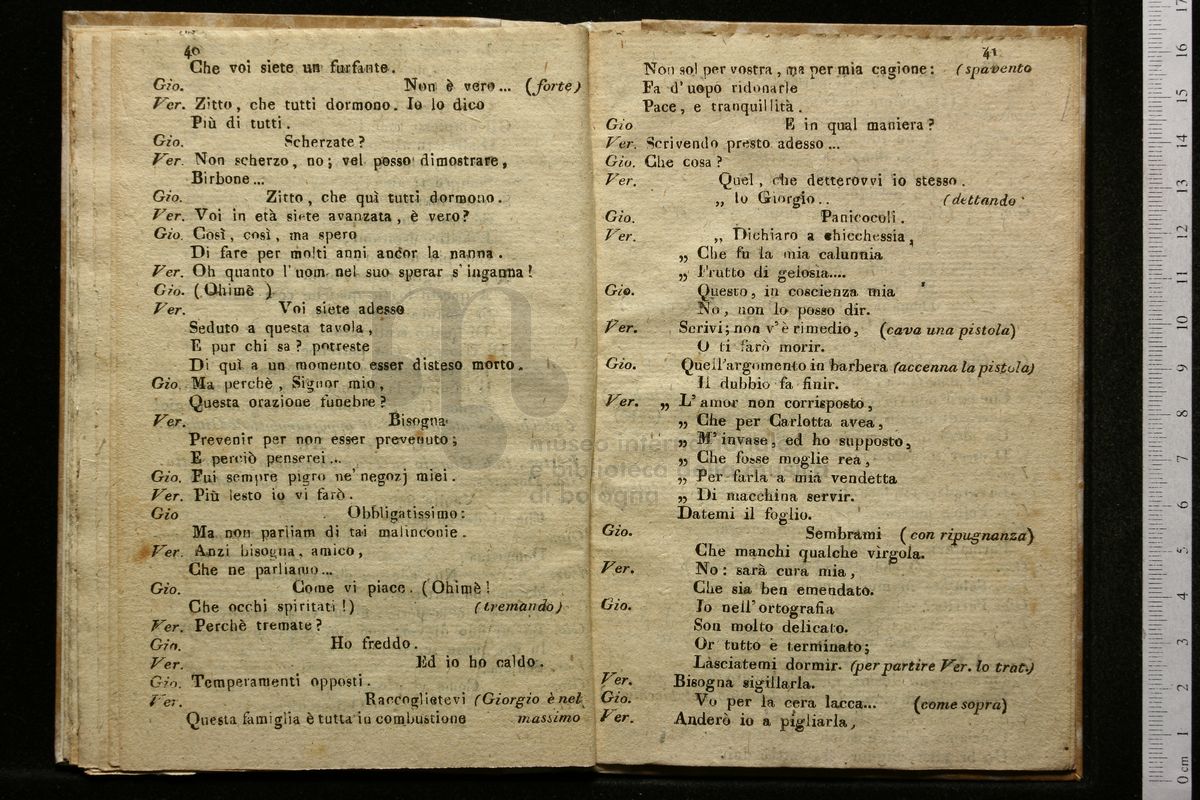 40
Che voi siete un furfante.
Gio. Non è vero... (forte)
Ver. Zitto, che tutti dormono. Io lo dico
Più di tutti.
Gio. Scherzate?
Ver. Non scherzo, no; vel posso dimostrare,
Birbone...
Gio. Zitto, che quì tutti dormono.
Ver. Voi in età siete avanzata, è vero?
Gio. Così, così, ma spero
Di fare per molti anni ancor la nanna.
Ver. Oh quanto l'uom nel suo sperar s'inganna!
Gio. (Ohimè)
Ver. Voi siete adesso
Seduto a questa tavola,
E pur chi sa? potreste
Di quì a un momento esser disteso morto.
Gio. Ma perchè, Signor mio,
Questa orazione funebre?
Ver. Bisogna
Prevenir per non esser prevenuto;
E perciò penserei...
Gio. Fui sempre pigro ne' negozj miei.
Ver. Più lesto io vi farò.
Gio Obbligatissimo:
Ma non parliam di tai malinconie.
Ver. Anzi bisogna, amico,
Che ne parliamo...
Gio. Come vi piace. (Ohimè!
Che occhi spiritati!) (tremando)
Ver. Perchè tremate?
Gio. Ho freddo.
Ver. Ed io ho caldo.
Gio. Temperamenti opposti.
Ver. Raccoglietevi (Giorgio è nel
Questa famiglia è tutta in combustione massimo
41
Non sol per vostra, ma per mia cagione: (spavento
Fa d'uopo ridonarle
Pace, e tranquillità.
Gio E in qual maniera?
Ver. Scrivendo presto adesso...
Gio. Che cosa?
Ver. Quel, che detterovvi io stesso.
„ Io Giorgio.. (dettando
Gio. Panicocoli.
Ver. „ Dichiaro a chicchessia,
„ Che fu la mia calunnia
„ Frutto di gelosia....
Gio. Questo, in coscienza mia
No, non lo posso dir.
Ver. Scrivi; non v'è rimedio, (cava una pistola)
O ti farò morir.
Gio. Quell'argomento in barbera (accenna la pistola)
Il dubbio fa finir.
Ver. „ L'amor non corrisposto,
„ Che per Carlotta avea,
„ M'invase, ed ho supposto,
„ Che fosse moglie rea,
„ Per farla a mia vendetta
„ Di macchina servir.
Datemi il foglio.
Gio. Sembrami (con ripugnanza)
Che manchi qualche virgola.
Ver. No: sarà cura mia,
Che sia ben emendato.
Gio. Io nell'ortografia
Son molto delicato.
Or tutto è terminato;
Lasciatemi dormir. (per partire Ver. lo trat.)
Ver. Bisogna sigillarla.
Gio. Vo per la cera lacca... (come sopra)
Ver. Anderò io a pigliarla,
museo
e biblioteca della musica
di bologna
0 cm 1 2 3 4 5 6 7 8 9 10 11 12 13 14 15 16 17